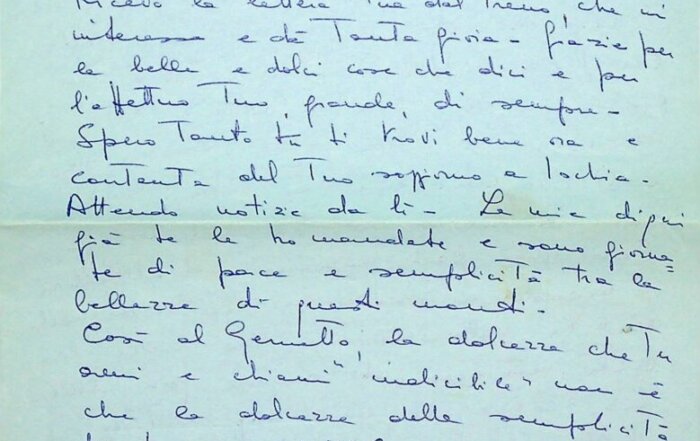 Ricevo la lettera tua dal treno, che mi
interessa e dà Tanta gioia - Grazie per
le belle e dolci cose che dici e per
l'affettuo Tuo, grande, di sempre -
Spero Tanto tu ti trovi bene ora e
contenta del Tuo soggiorno a Ischia.
Attendo notizie da lì - Le mie di qui
già te le ho mandate e sono giorna=
te di pace e semplicità tra la
bellezza di questi monti.
Così al Gernetto, la dolcezza che Tu
ami e chiami "indicibile" non è
che la dolcezza della semplicità